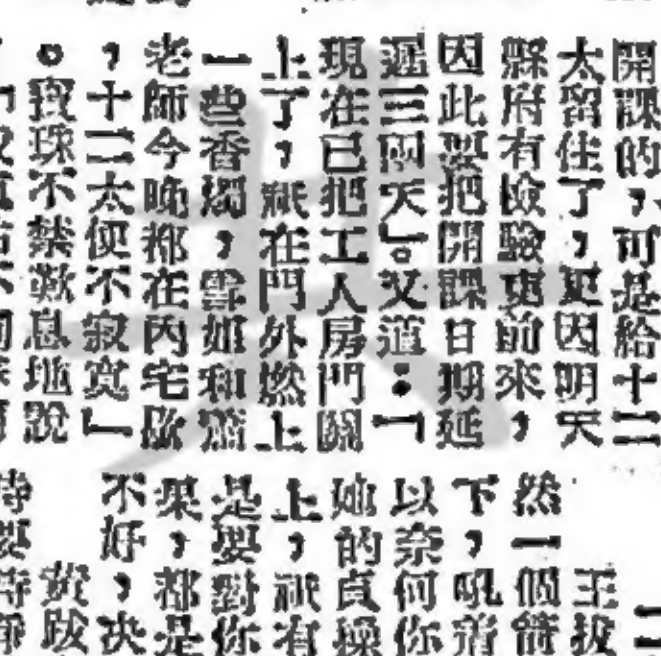 開課的，可是給十二
太留住了，更因明天
縣府有檢驗吏前來，
因此要把開課日期延
遲三兩天」。又道：「
現在已把工人房門關
上了，祇在門外燃上
一些香燭，雪姐和
老師今晚都在內宅歇
，十二太便不寂寞」
。寶珠不禁歎息地說
王拔
然一個箭
下，吼道
以奈何你
她的貞操
上，祇有
是要對你
果，都是
不好，决
黃跋
待要